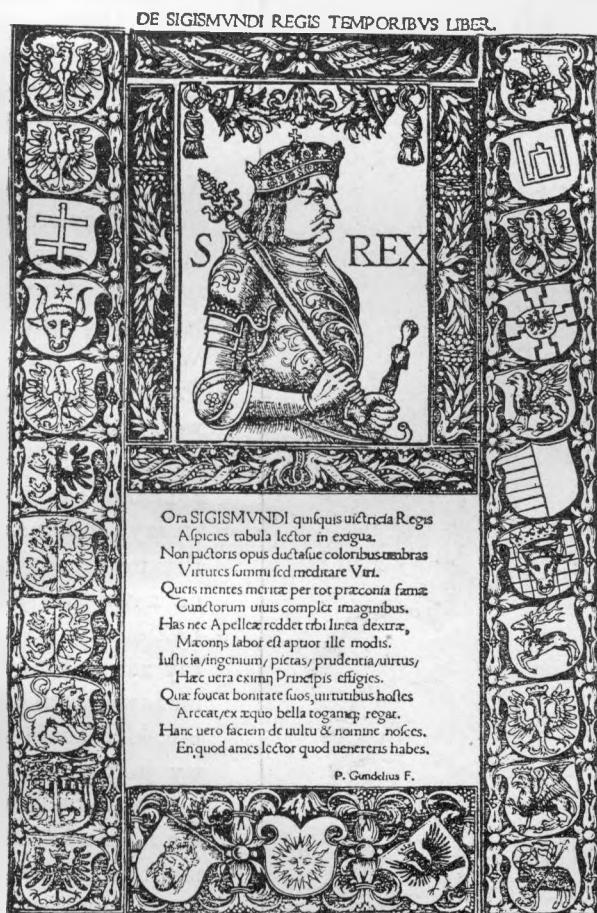 DE SIGISMVNDI REGIS TEMPORIBVS LIBER.
S REX
Ora SIGISMVNDI quiſquis uictricia Regis
Aſpicies tabula lector in exigua.
Non pictoris opus ductaſue coloribus umbras
Virtutes ſummi ſed meditare Viri.
Queis mentes meritæ per tot præconia famæ
Cunctorum uiuis complet imaginibus.
Has nec Apelleæ reddet tibi linea dextræ,
Mæonijs labor eſt aptior ille modis.
Iuſticia/ingenium/ pietas/ prudentia/uirtus/
Hæc uera eximij Principis effigies.
Quæ foueat bonitate ſuos, uirtutibus hoſtes
Arceat/ex æquo bella togamq; regat.
Hanc uero faciem de uultu & nomine noſces.
En quod ames lector quod uenereris habes.
P. Gundelius F.